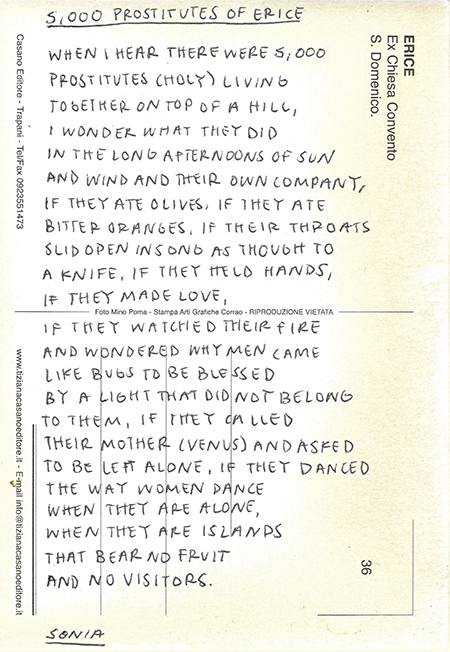 5,000 PROSTITUTES OF ERICE
WHEN I HEAR THERE WERE 5,000
PROSTITUTES (HOLY) LIVING
TOGETHER ON TOP OF A HILL,
I WONDER WHAT THEY DID
IN THE LONG AFTERNOONS OF SUN
AND WIND AND THEIR OWN COMPANY,
IF THEY ATE OLIVES, IF THEY ATE
BITTER ORANGES, IF THEIR THROATS
SLID OPEN IN SONG AS THOUGH TO
A KNIFE, IF THEY HELD HANDS,
IF THEY MADE LOVE,
IF THEY WATCHED THEIR FIRE
AND WONDERED WHY MEN CAME
LIKE BUGS TO BE BLESSED
BY A LIGHT THAT DID NOT BELONG
TO THEM, IF THEY CALLED
THEIR MOTHER (VENUS) AND ASKED
TO BE LEFT ALONE, IF THEY DANCED
THE WAY WOMEN DANCE
WHEN THEY ARE ALONE,
WHEN THEY ARE ISLANDS
THAT BEAR NO FRUIT
AND NO VISITORS.
SONIA
ERICE
Ex Chiesa Convento
S. Domenico.
Casano Editore - Trapani - Tel/Fax 0923551473
Foto Mino Poma - Stampa Arti Grafiche Corrao - RIPRODUZIONE VIETATA
www.tizianacasanoeditore.it - E-mail info@tizianacasanoeditore.it
36